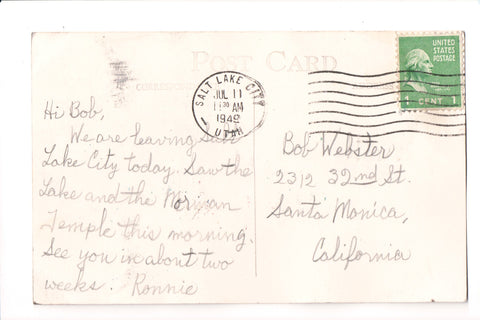 POST CARD
CORRESPONDENCE
SALT LAKE CITY
JUL 11
11 30 AM
1949
UTAH
UNITED
STATES
POSTAGE
1 CENT 1
Hi Bob,
We are leaving Salt
Lake City today. Saw the
Lake and the Morman
Temple this morning.
See you in about two
weeks. Ronnie
Bob Webster
2312 32nd St.
Santa Monica,
California